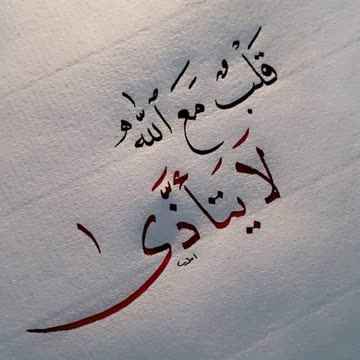 قَلْبٌ مَعَ اللّٰه
لَا يَتَأَذَّى